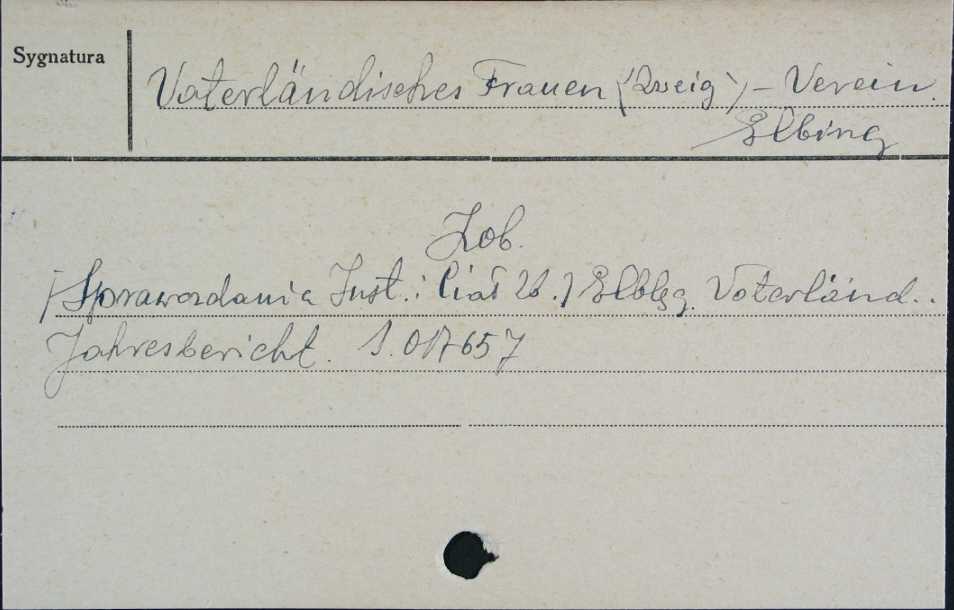 Sygnatura
Vaterländisches Frauen (Zweig) - Verein.
Elbing
Zob.
[Sprawozdania Inst. i Ciał Zb.] Elbląg. Vaterländ..
Jahresbericht. S. 017657